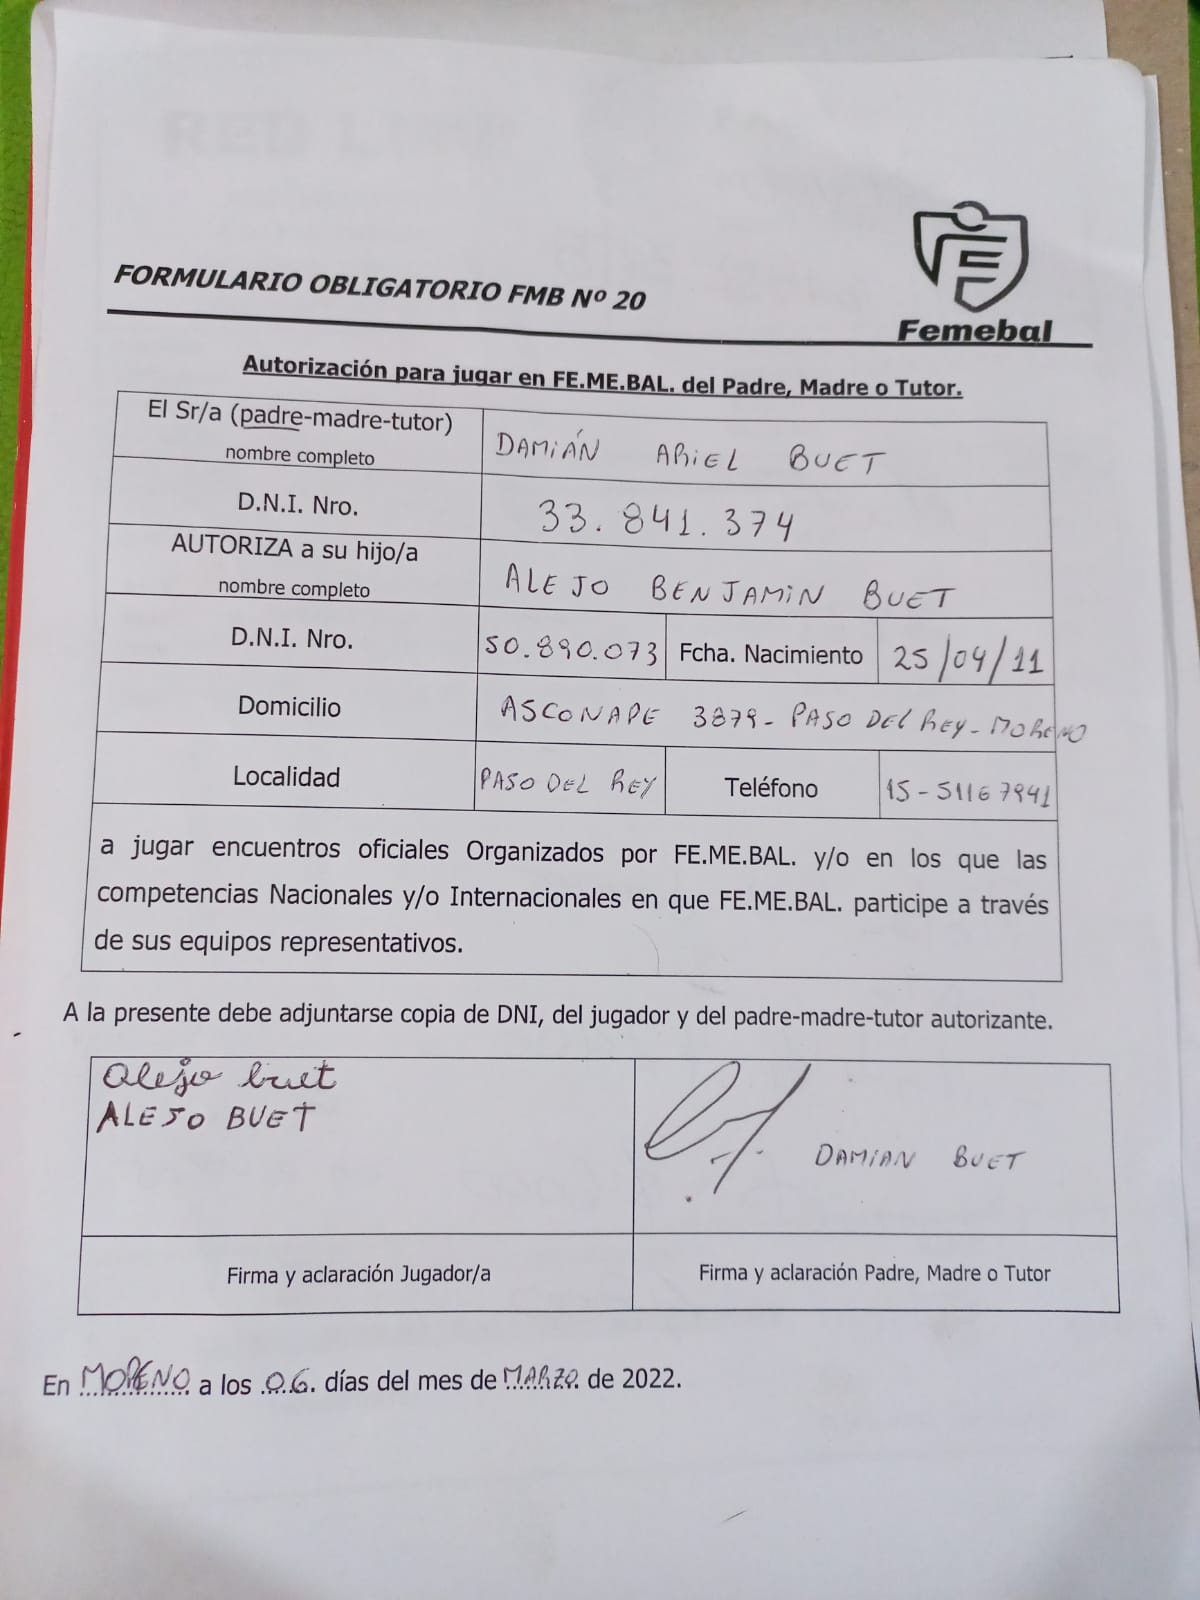 FORMULARIO OBLIGATORIO FMB Nº 20
Femebal
Autorización para jugar en FE.ME.BAL. del Padre, Madre o Tutor.
El Sr/a (padre-madre-tutor) nombre completo
DAMIÁN ARIEL BUET
D.N.I. Nro.
33.841.374
AUTORIZA a su hijo/a nombre completo
ALEJO BENJAMIN BUET
D.N.I. Nro.
50.890.073
Fcha. Nacimiento
25/04/11
Domicilio
ASCONAPE 3879- PASO DEL REY- MORENO
Localidad
PASO DEL REY
Teléfono
15-51167941
a jugar encuentros oficiales Organizados por FE.ME.BAL. y/o en los que las
competencias Nacionales y/o Internacionales en que FE.ME.BAL. participe a través
de sus equipos representativos.
A la presente debe adjuntarse copia de DNI, del jugador y del padre-madre-tutor autorizante.
Alejo buet
ALEJO BUET
DAMIAN BUET
Firma y aclaración Jugador/a
Firma y aclaración Padre, Madre o Tutor
En MORENO a los 06 días del mes de MARZO de 2022.